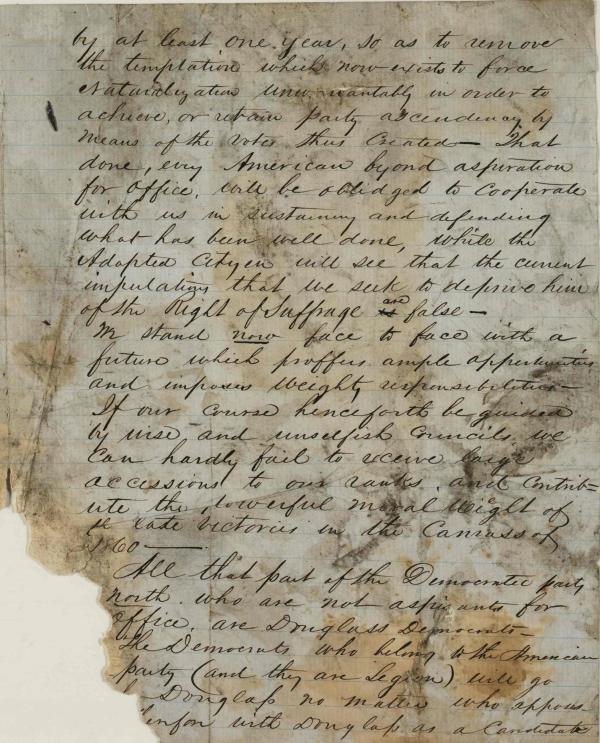 by at least one year, so as to remove
the temptation which now exists to force
Naturalization unwarrantably in order to
achieve, or retain party ascendency by
means of the votes thus Created— That
done, every American byond aspiration
for office, will be obliged to Cooperate
with us in sustaining and defending
what has been well done, while the
Adopted Cityen will see that the current
imputations that we seek to deprive him
of the Right of Suffrage are false—
We stand now face to face with a
future which proffers ample opportunities
and imposes weighty responsibilities—
If our course henceforth be guided
by wise and unselfish Councils, we
Can hardly fail to receive large
accessions to our ranks, and Contrib-
ute the powerful moral weight of
late victories in the Canvass of
1860—
All that part of the Democratic party
north who are not aspirants for
office, are Douglass Democrats—
The Democrats who belong to the American
party (and they are Legion) will go
Douglass no matter who
with Douglass as a Candidate